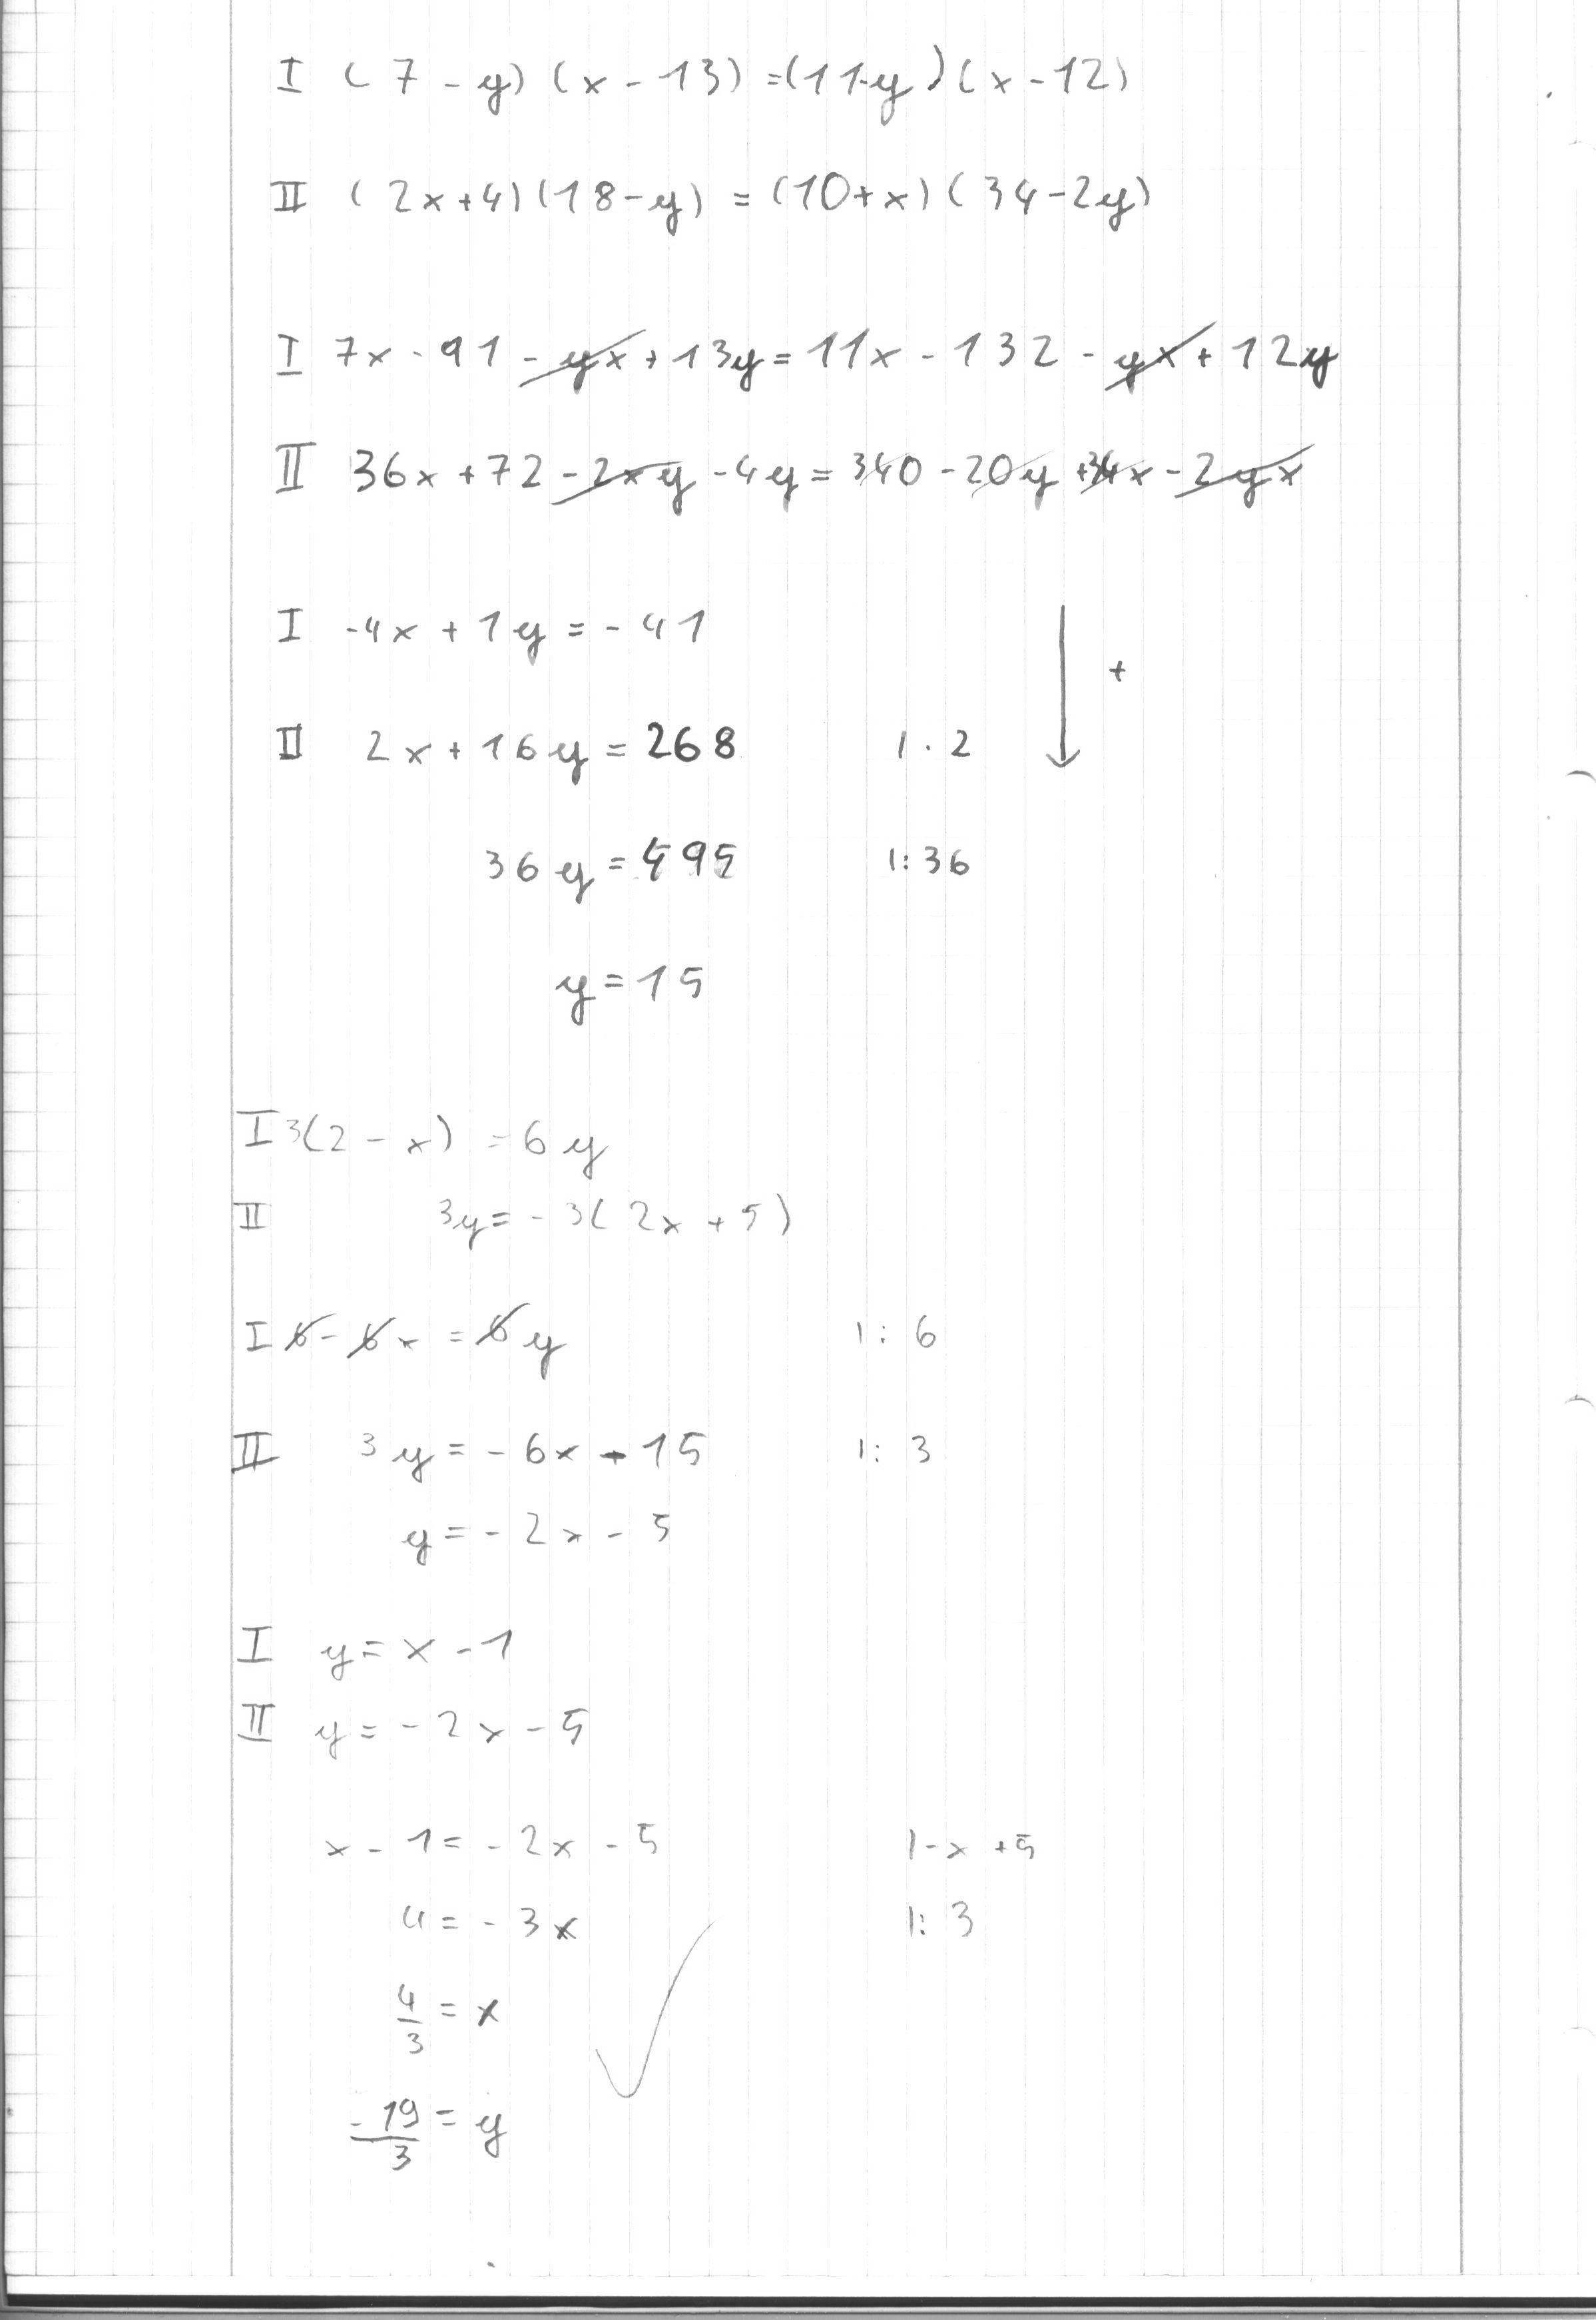 I (7 - y) (x - 13) = (11-y) (x - 12)
II (2x+4)(18-y) = (10+x)(34-2y)
I 7x - 91 - yx + 13y = 11x - 132 - yx + 12y
II 36x + 72 - 2xy - 4y = 340 - 20y + 34x - 2yx
I -4x + 1y = - 41
+
II 2x + 16y = 268 | · 2
36y = 495 | : 36
y = 15
I 3(2 - x) = 6y
II 3y = - 3(2x + 5)
I 6 - 6x = 6y | : 6
II 3y = - 6x - 15 | : 3
y = - 2x - 5
I y = x - 1
II y = - 2x - 5
x - 1 = - 2x - 5 | - x + 5
4 = - 3x | : 3
4/3 = x
-19/3 = y